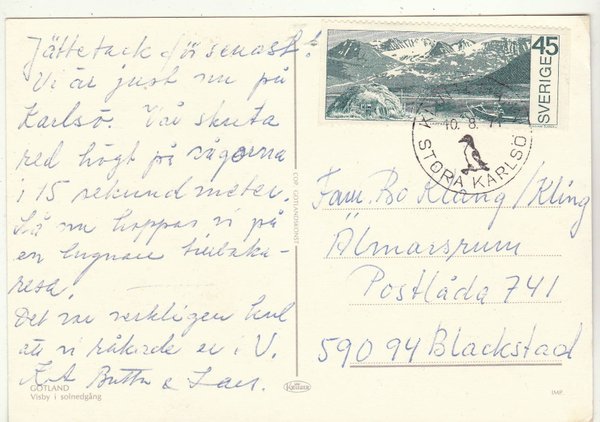 Jättetack för senast!
Vi är just nu på
Karlsö. Vår skuta
red högt på vågorna
i 15 sekundmeter.
Så nu hoppas vi på
en lugnare tillbaka-
resa.
Det var verkligen kul
att vi råkade er i V.
Butta & Lars.
GOTLAND
Visby i solnedgång
COP. GOTLANDSKONST
45
SVERIGE
10. 8. 7
STORA KARLSÖ
Fam. Bo Klang/Kling
Älmarsrum
Postlåda 741
590 94 Blackstad